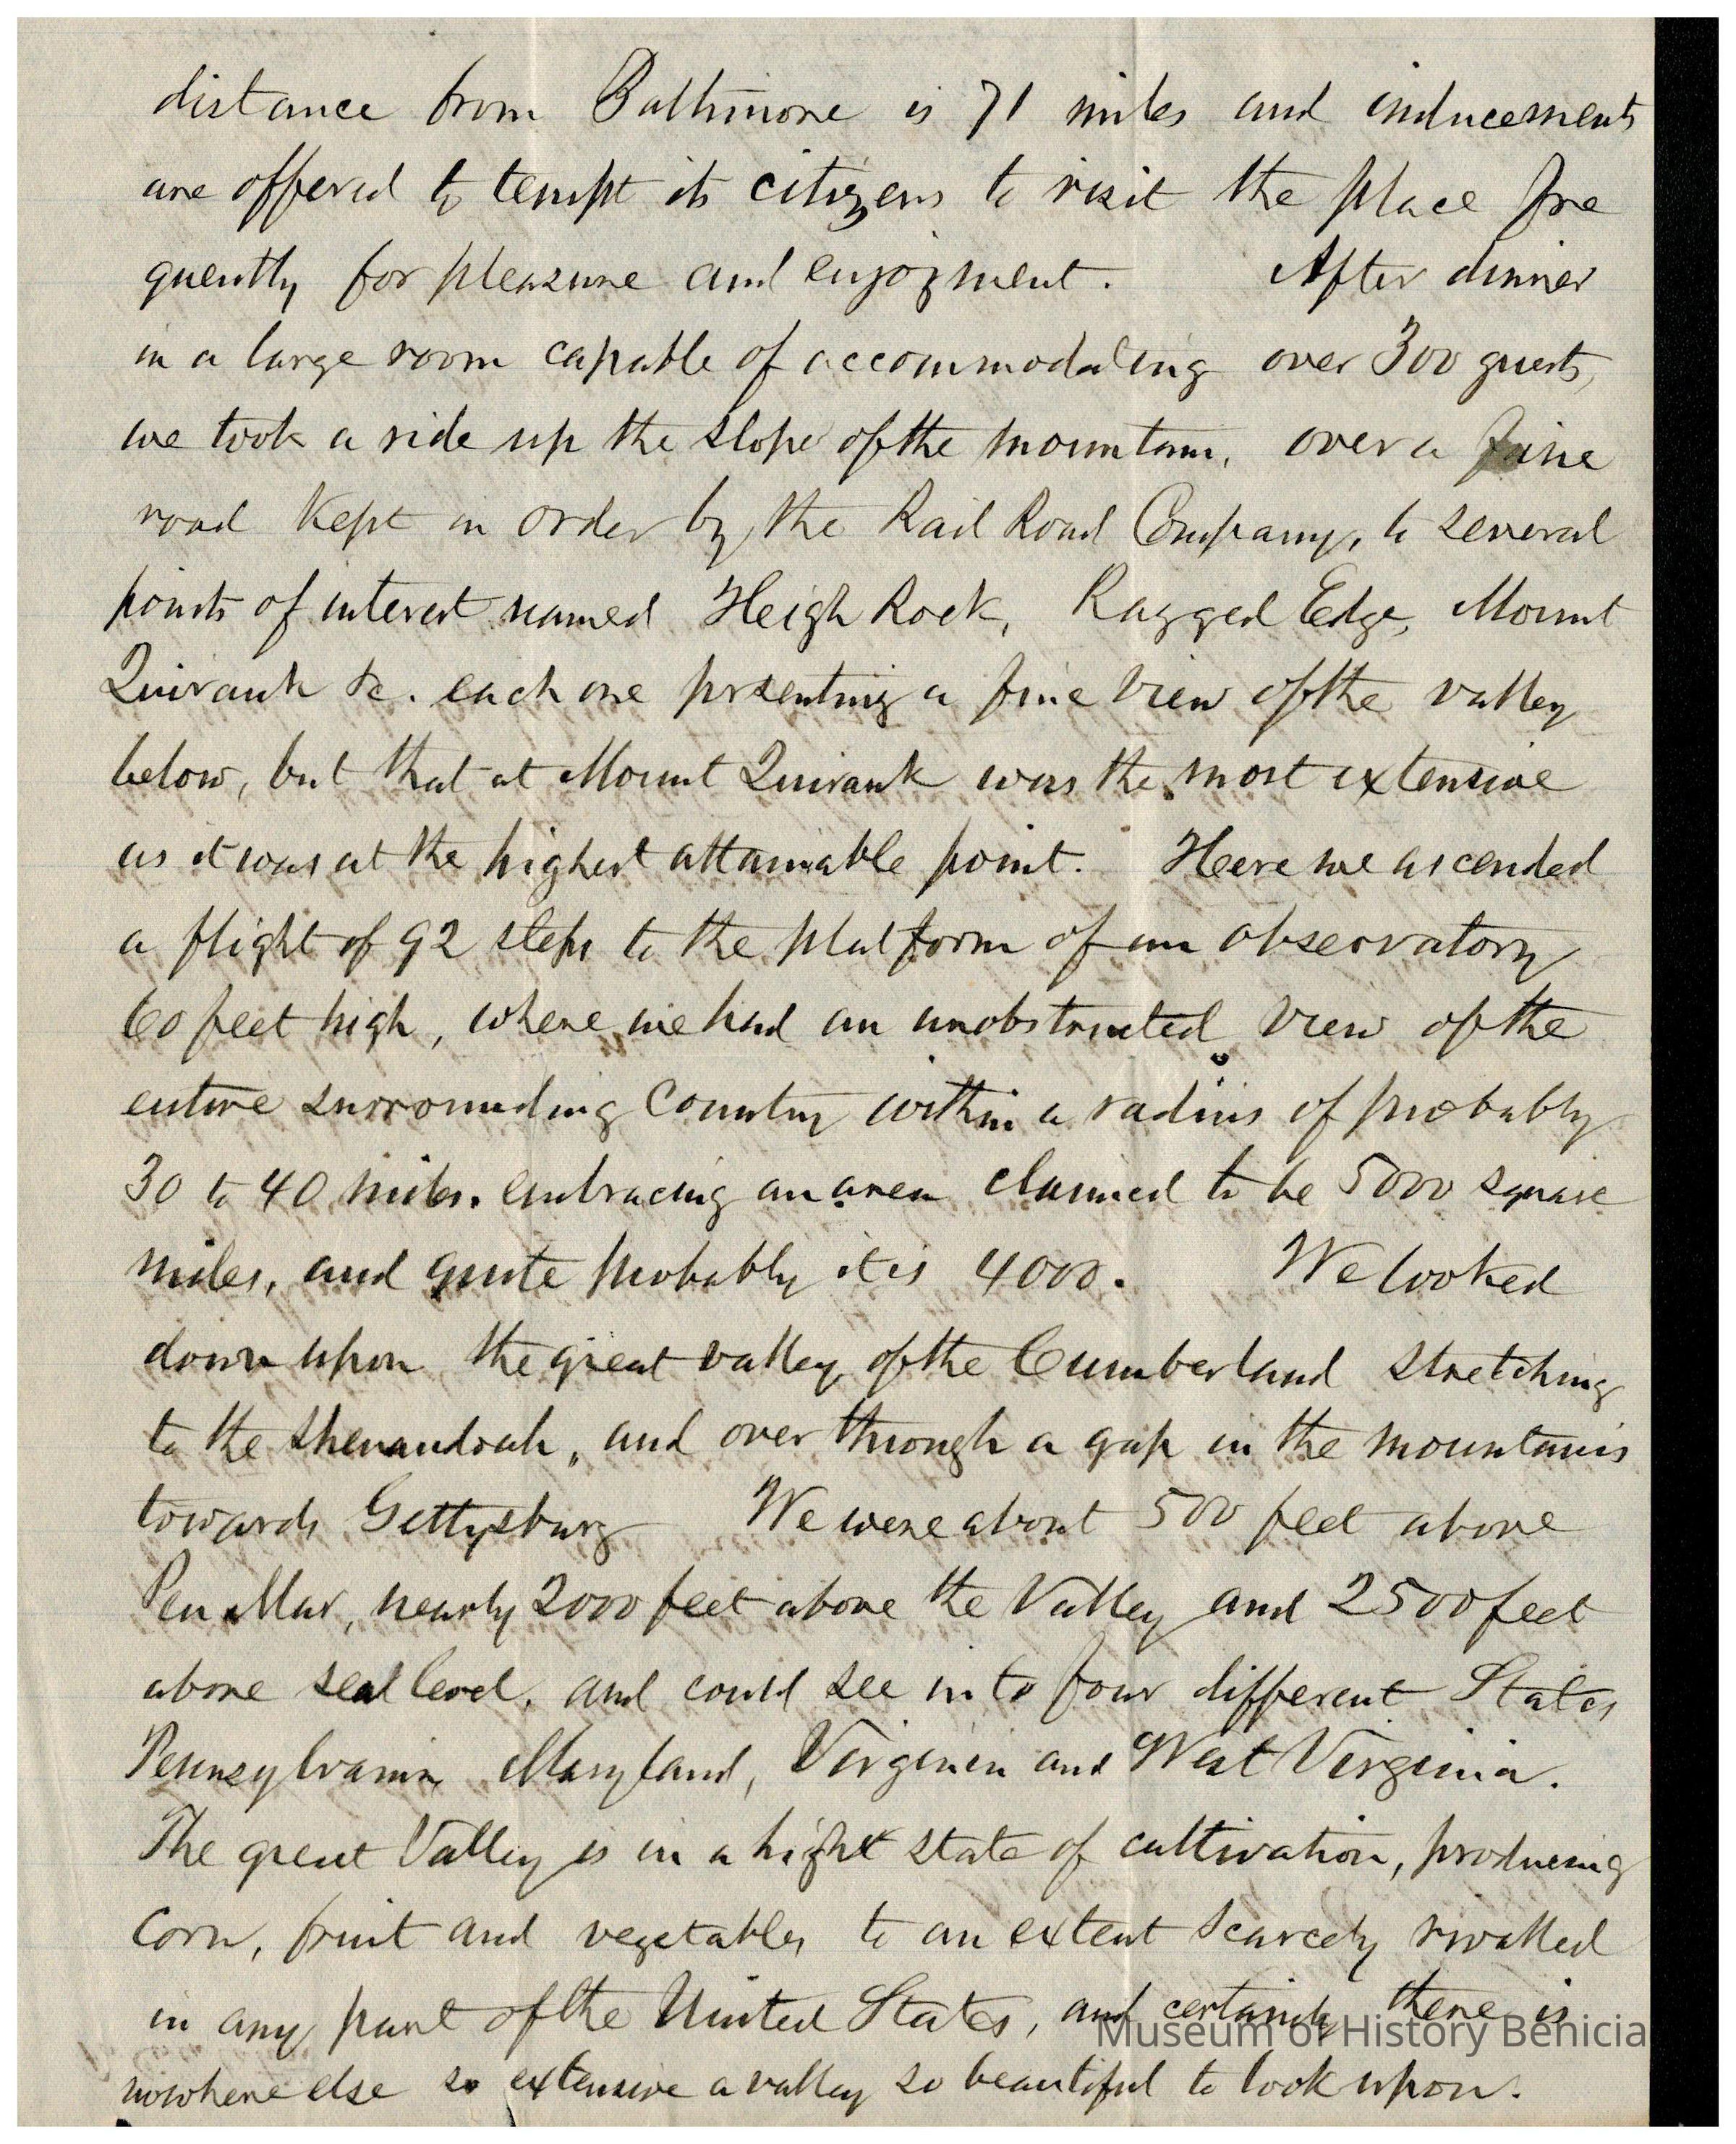 distance from Baltimore is 71 miles and inducements
are offered to tempt its citizens to visit the place fre
quently for pleasure and enjoyment. After dinner
in a large room capable of accommodating over 300 guests,
we took a ride up the slope of the mountain, over a fine
road kept in order by the Rail Road Company, to several
points of interest named Heigh Rock, Ragged Edge, Mount
Quirauk &c. each one presenting a fine view of the valley
below, but that at Mount Quirauk was the most extensive
as it was at the highest attainable point. Here we ascended
a flight of 92 steps to the platform of an observatory
60 feet high, where we had an unobstructed view of the
entire surrounding Country within a radius of probably
30 to 40 miles. embracing an area claimed to be 5000 square
miles, and quite probably it is 4000. We looked
down upon the great valley of the Cumberland stretching
to the Shenandoah, and over through a gap in the mountains
towards Gettysburg We were about 500 feet above
Pen Mar, nearly 2000 feet above the Valley and 2500 feet
above sea level, and could see into four different States
Pennsylvania Maryland, Virginia and West Virginia.
The great Valley is in a high state of cultivation, producing
corn, fruit and vegetables to an extent scarcely rivalled
in any part of the United States, and certainly there is
nowhere else so extensive a valley so beautiful to look upon.
Museum of History Benicia